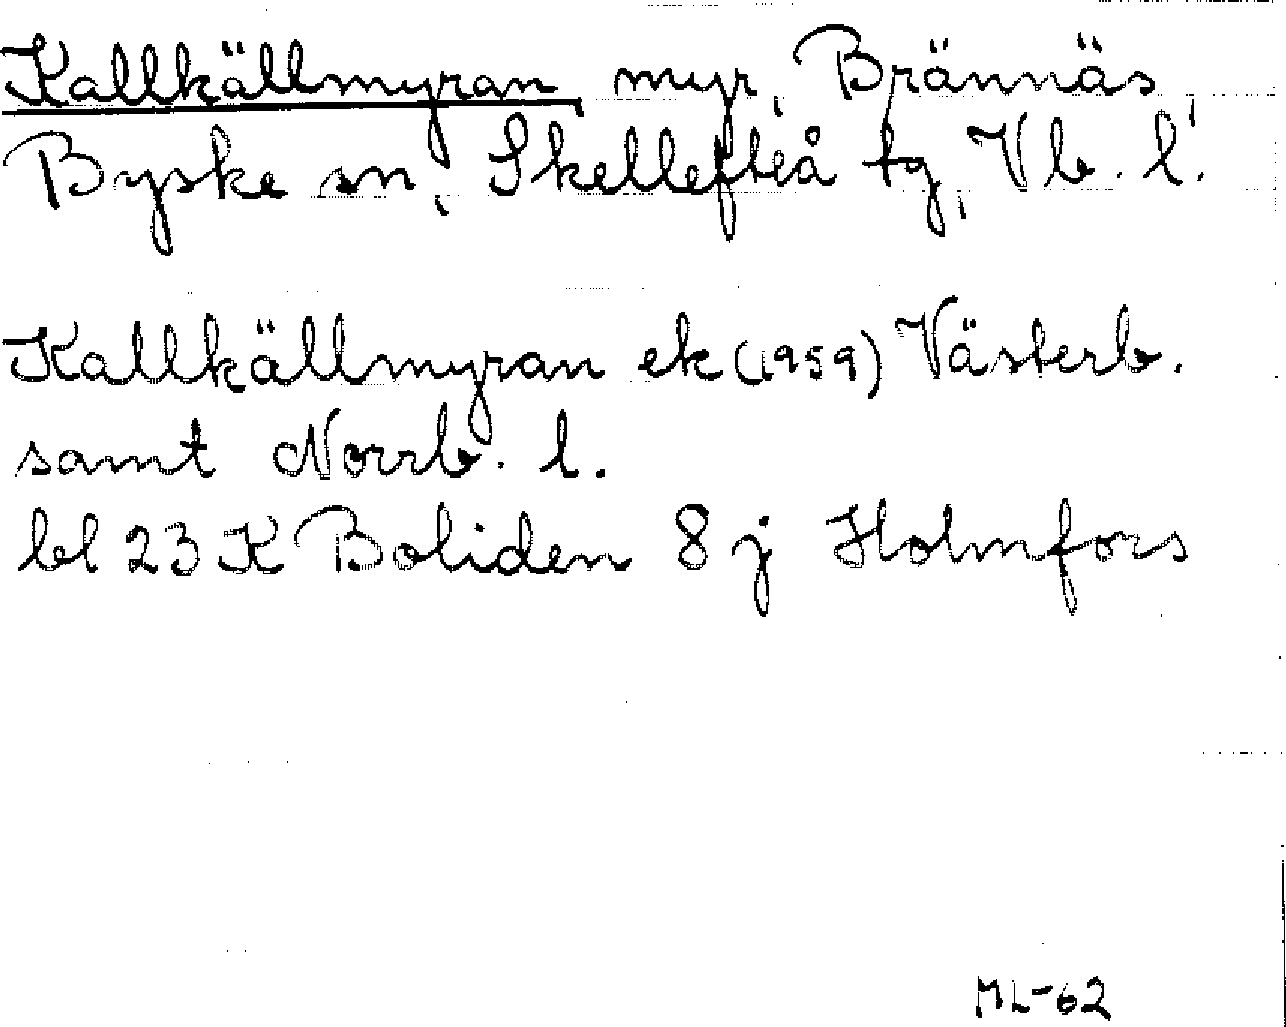 Kallkällmyran, myr, Brännäs,
Byske sn, Skellefteå tg, Vb. l.
Kallkällmyran ek (1959) Västerb.
samt Norrb. l.
bl 23 K Boliden 8 j Holmfors
ML-62